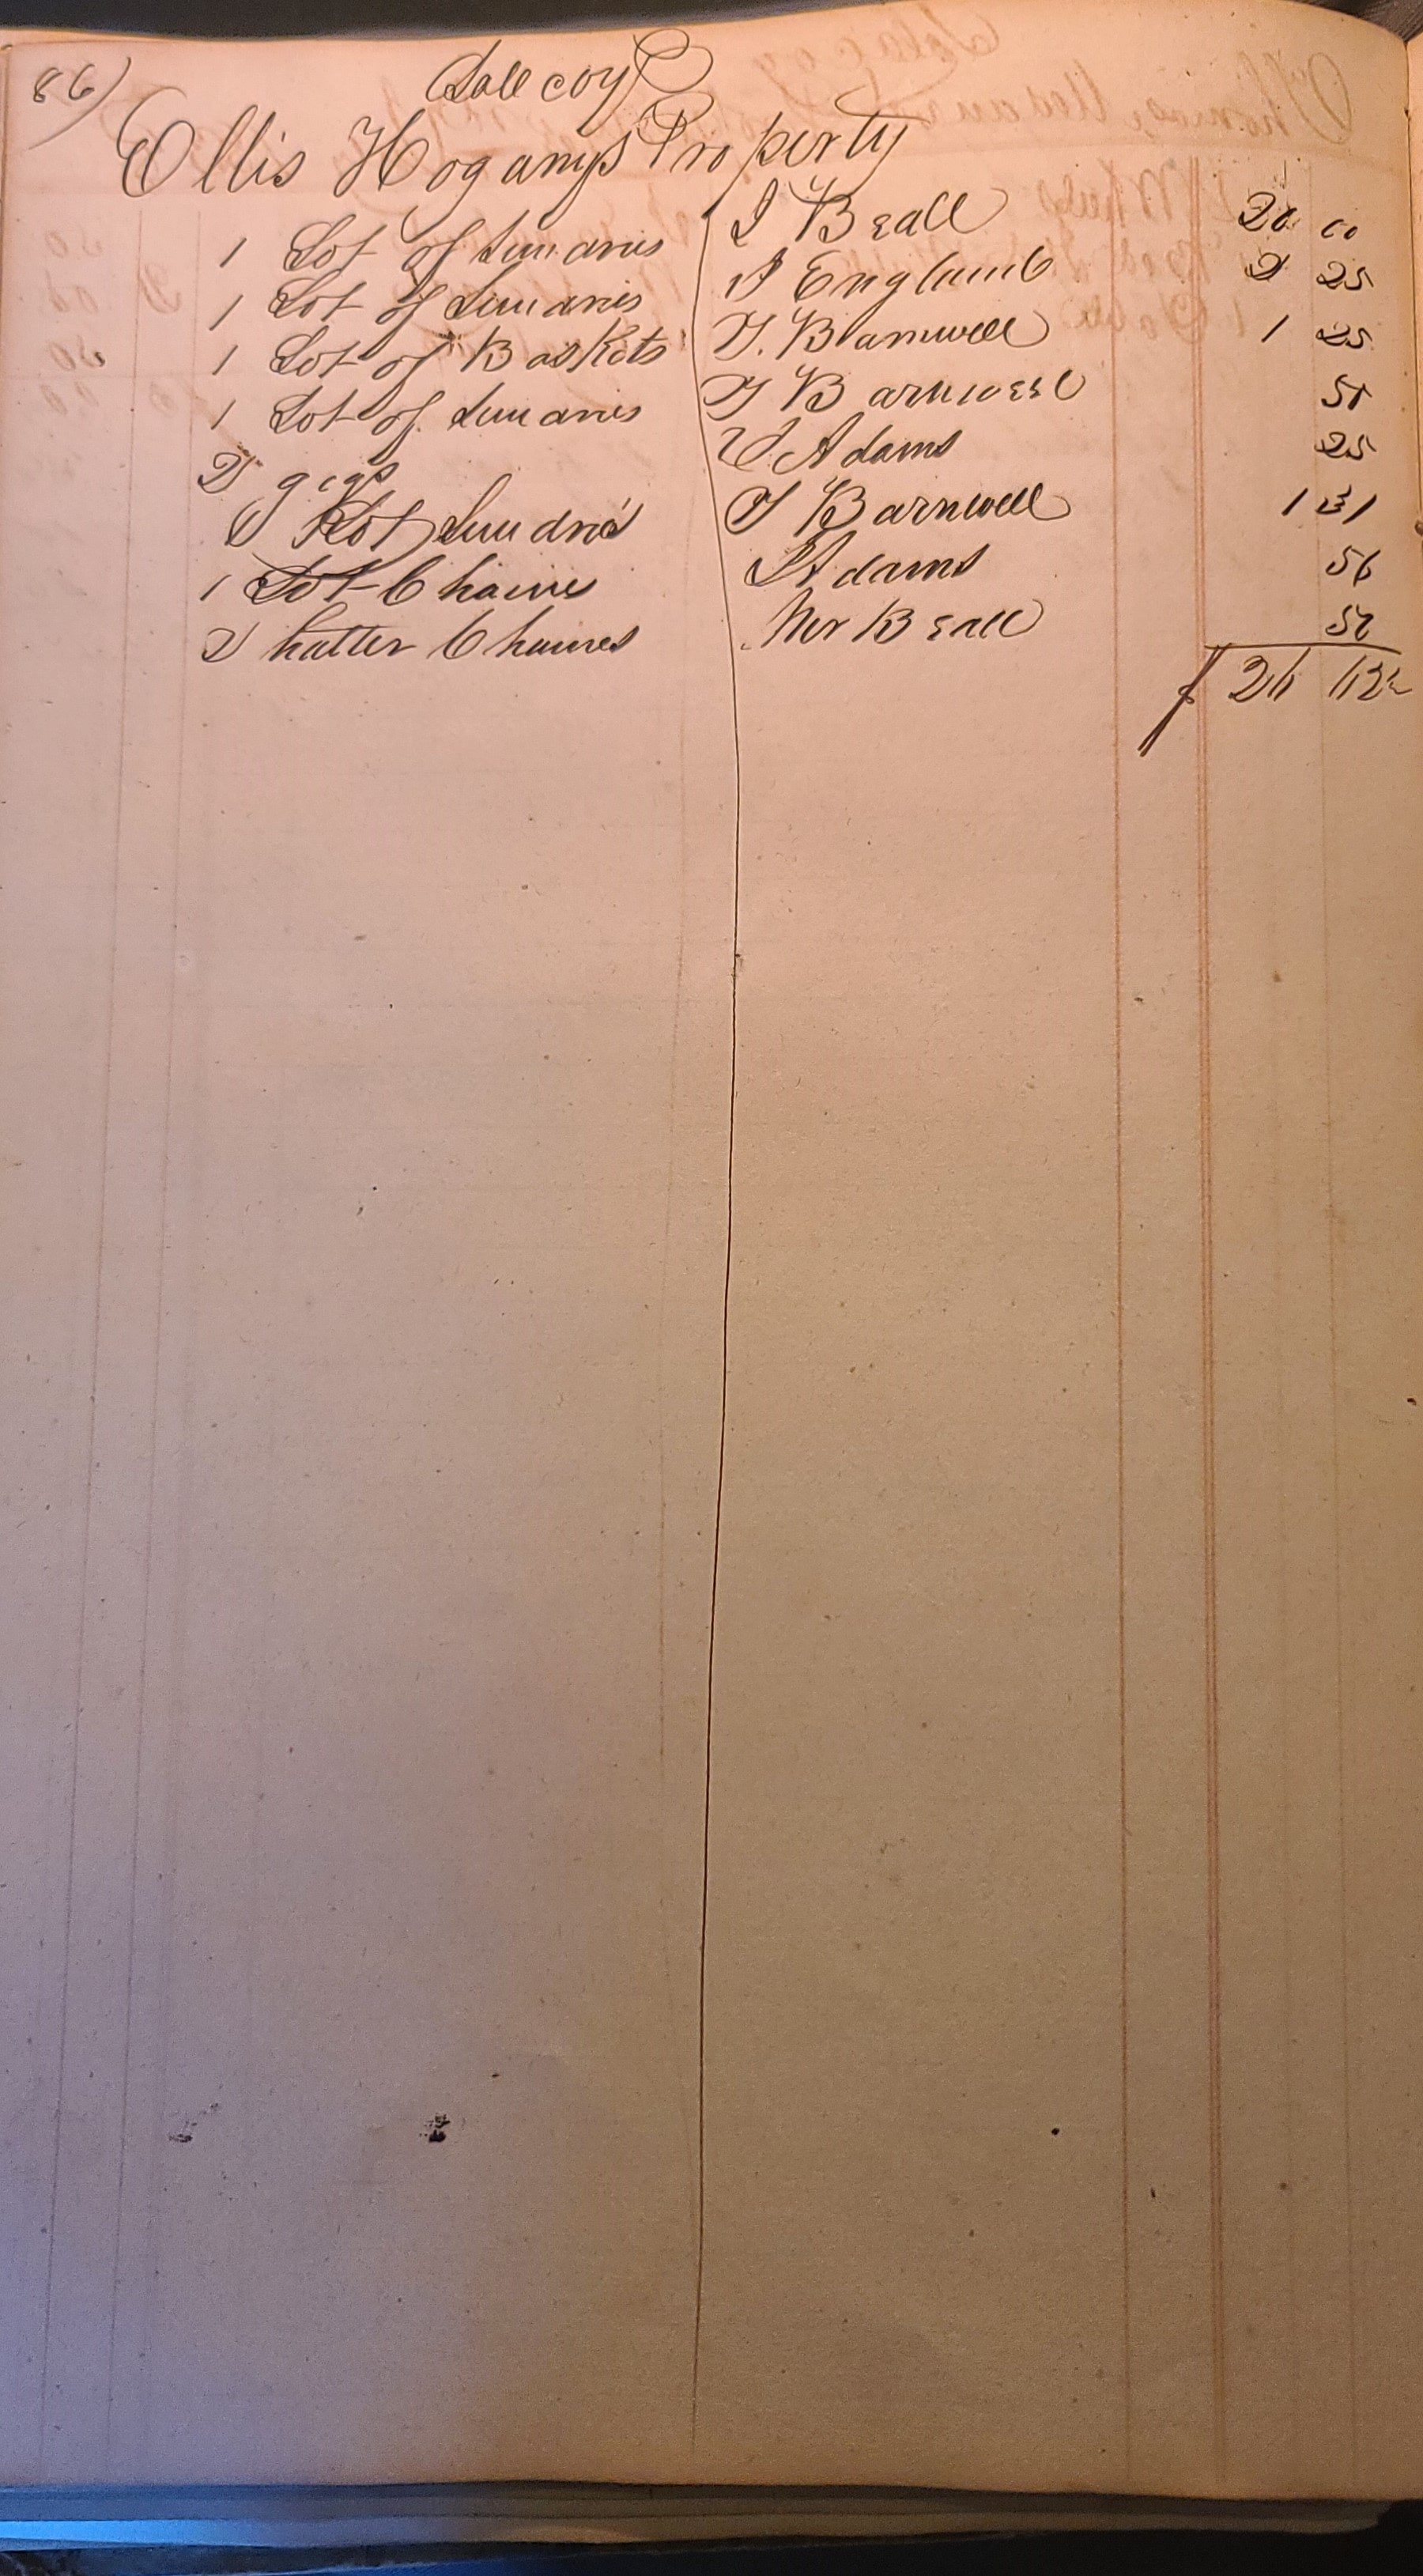 86)
Sale coy
Ellis Hogany's Property
1 Lot of Sundries I Beall 20 00
1 Lot of Sundries J England 2 25
1 Lot of Baskets T. Barnwell 1 25
1 Lot of Sundries T Barnwell 51
2 gigs J Adams 25
1 Lot Sundries T Barnwell 1 31
1 Lot Chaires J Adams 56
2 halter Chaines Mr Beall 50
$ 26